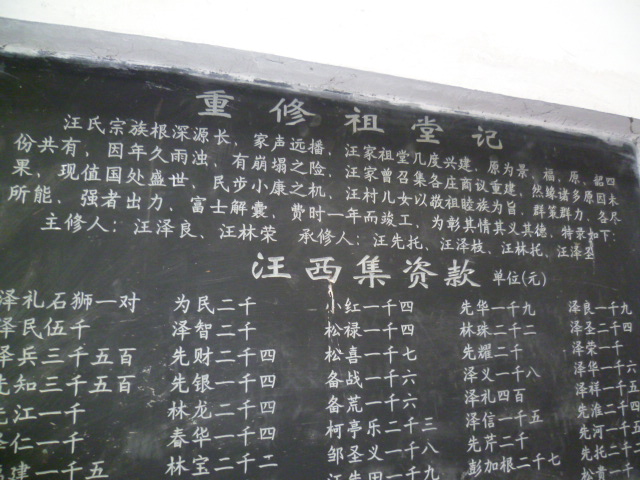 重修祖堂记
汪氏宗族根深源长，家声远播，汪家祖堂几度兴建，原为景、福、原、韶四
份共有，因年久雨浊，有崩塌之险，汪家曾召集各庄商议重建，然缘诸多原因未
果，现值国处盛世、民步小康之机，汪村儿女以敬祖睦族为旨，群策群力，各尽
所能，强者出力，富士解囊，费时一年而竣工，为彰其情其义其德，特录如下：
主修人：汪泽良、汪林荣 承修人：汪先托、汪泽枝、汪林托、汪泽丞
汪西集资款 单位(元)
泽礼石狮一对 为民二千 小红一千四 先华一千九 泽良一千九
泽民伍千 泽智二千 松禄一千四 林珠二千二 泽圣二千四
泽兵三千五百 先财二千四 松喜一千七 先耀二千 泽荣二千
先知三千五百 先银一千四 备战一千六 泽义一千八 泽华一千六
先江一千 林龙二千四 备荒一千六 泽礼四百 泽祥一千五
泽仁一千 春华一千四 柯亭乐二千三 泽信一千五 先淮二千四
建一千五 林宝二千二 邹圣义一千八 先芹二千 先河一千五
江先田一千九 彭加根二千七 先托二千二
松贵一千